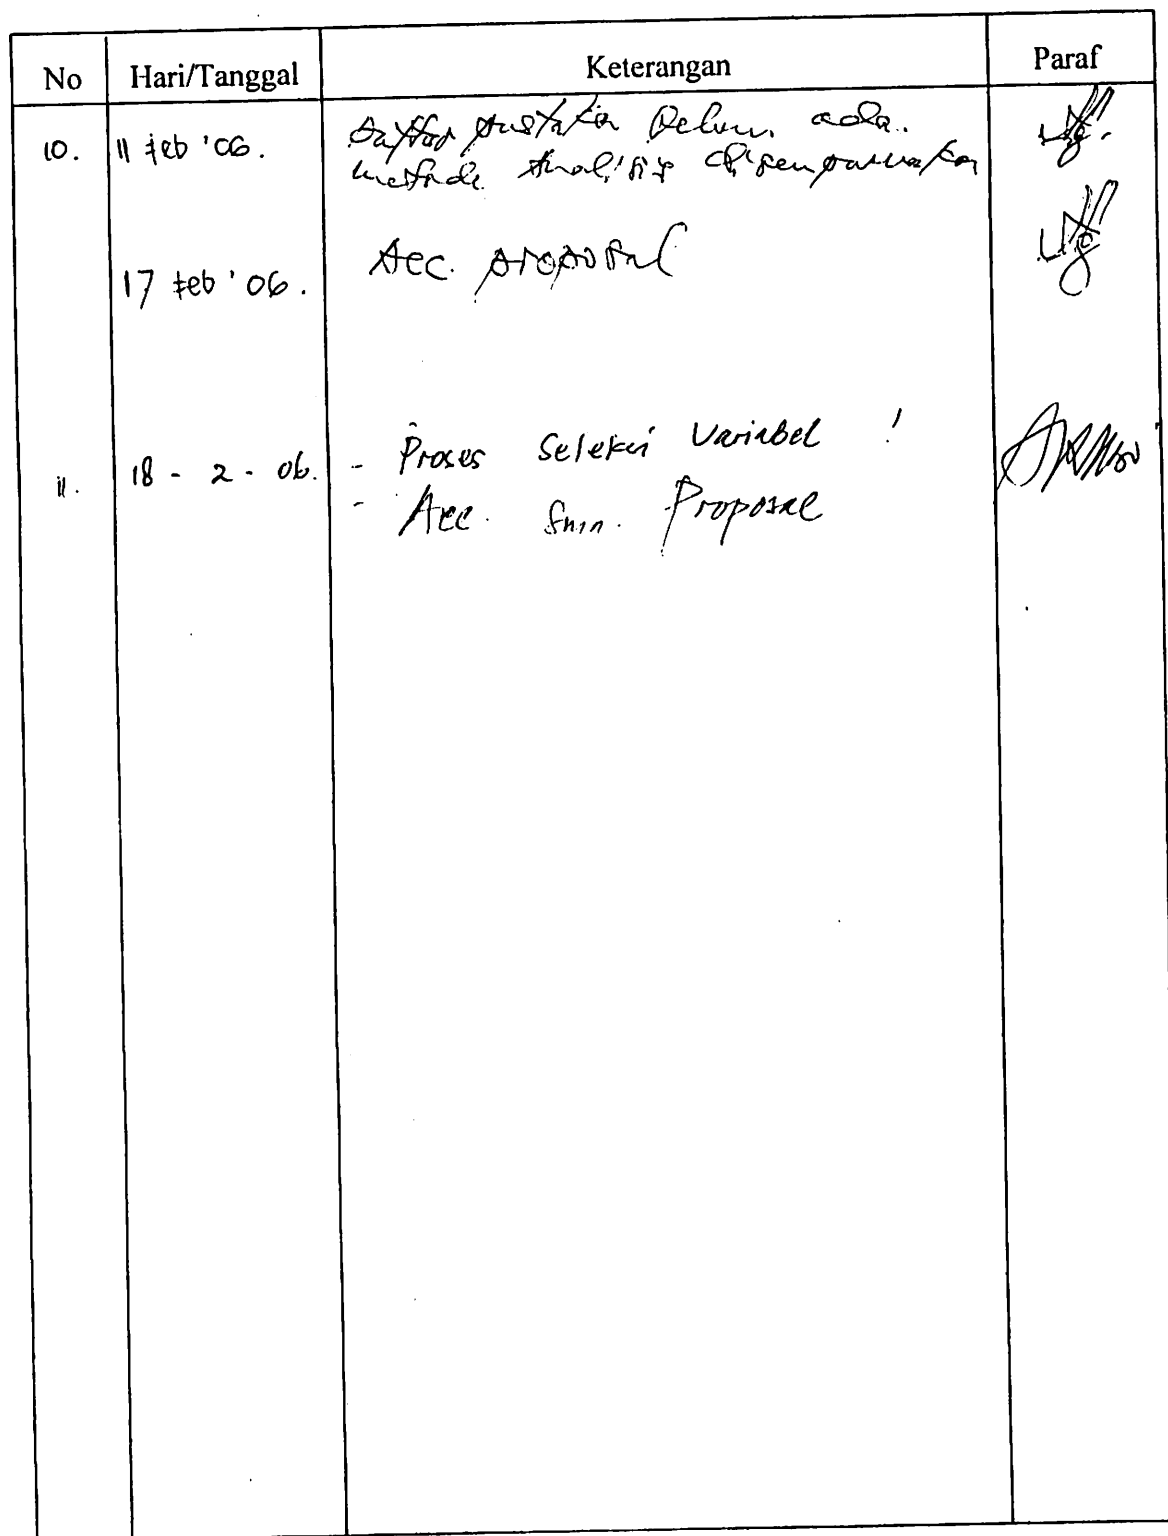 No Hari/Tanggal Keterangan Paraf
10. 11 feb '06. Daftar pustaka belum ada.
metode analisis disempurnakan
17 feb '06. Acc. proposal
11. 18 - 2 - 06. - Proses Seleksi Variabel !
- Acc. Smin. Proposal